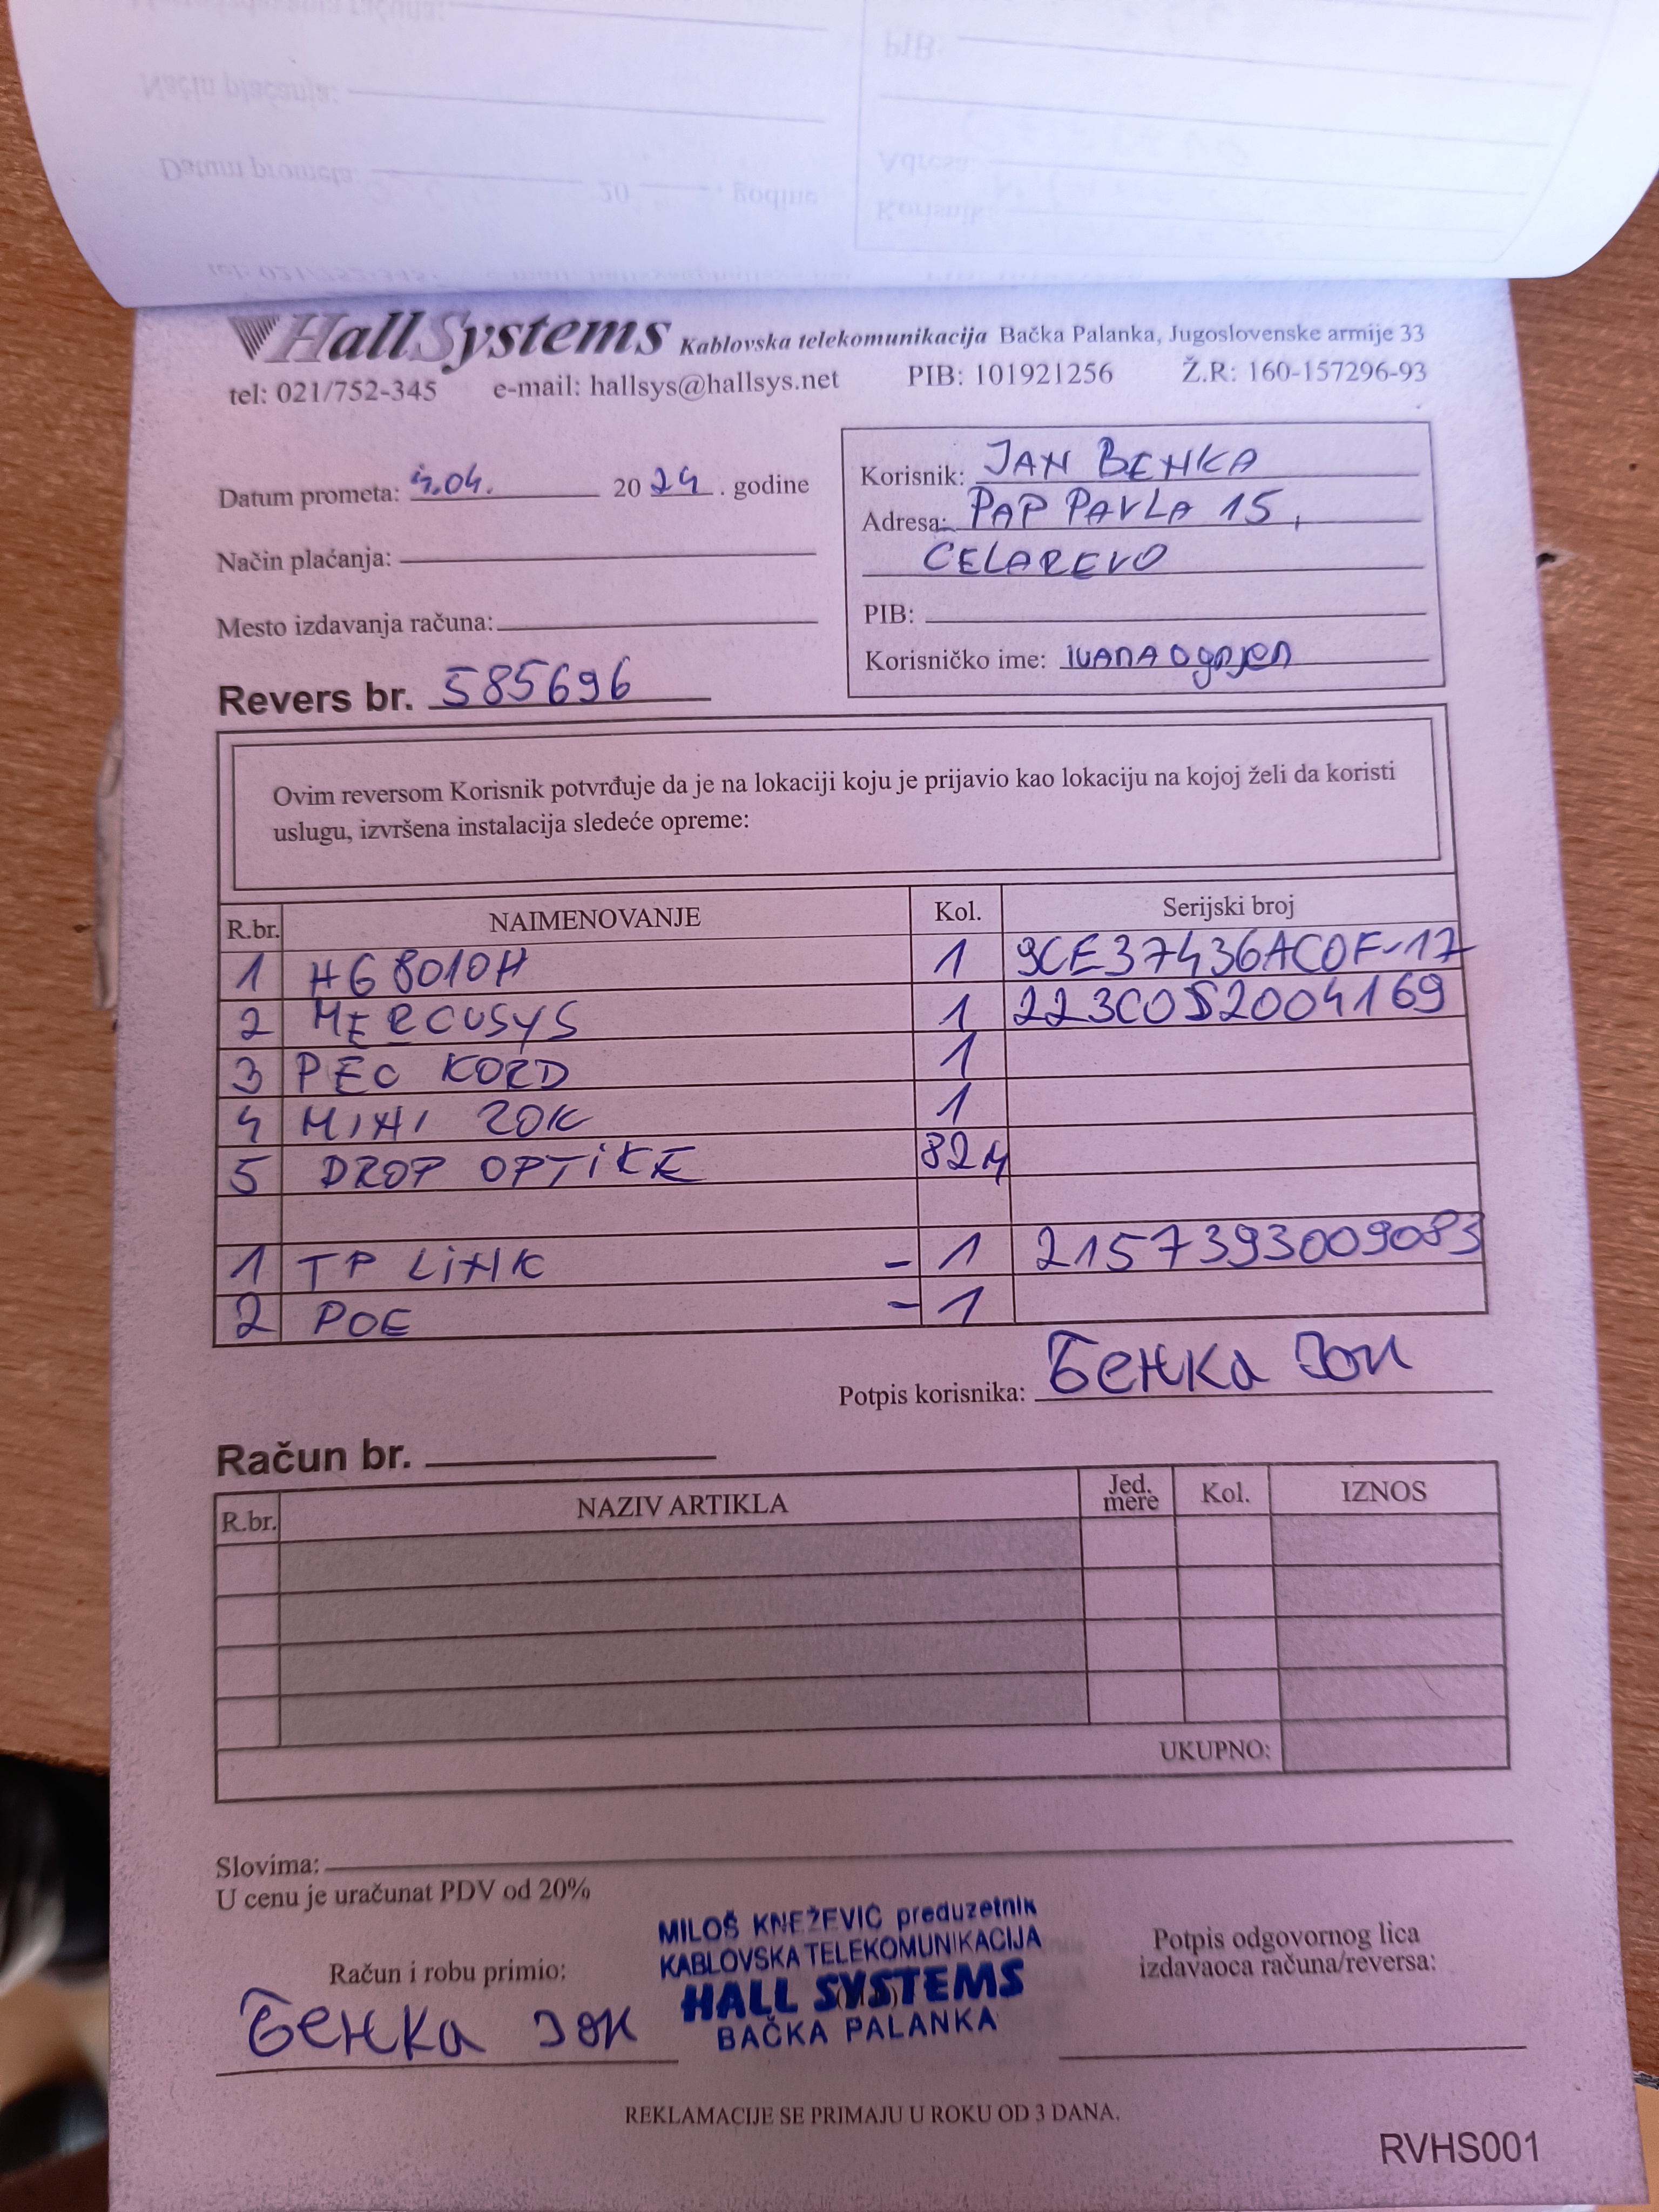 HallSystems Kablovska telekomunikacija Bačka Palanka, Jugoslovenske armije 33
tel: 021/752-345 e-mail: hallsys@hallsys.net PIB: 101921256 Ž.R: 160-157296-93
Datum prometa: 04. 2024. godine
Način plaćanja:
Mesto izdavanja računa:
Revers br. 585696
Korisnik: JAN BENKA
Adresa: PAP PAVLA 15,
CELAREVO
PIB:
Korisničko ime: IVANAOgnjen
Ovim reversom Korisnik potvrđuje da je na lokaciji koju je prijavio kao lokaciju na kojoj želi da koristi
uslugu, izvršena instalacija sledeće opreme:
R.br. NAIMENOVANJE Kol. Serijski broj
1 HG8010H 1 9CE37436AC0F-17
2 MERCUSYS 1 223C0S2004169
3 PEC KORD 1
4 MINI ZOK 1
5 DROP OPTIKE 82M
1 TP LINK - 1 2157393009083
2 POE - 1
Potpis korisnika: Бенка
Račun br.
R.br. NAZIV ARTIKLA Jed. mere Kol. IZNOS
UKUPNO:
Slovima:
U cenu je uračunat PDV od 20%
Račun i robu primio:
Бенка
MILOŠ KNEŽEVIĆ preduzetnik
KABLOVSKA TELEKOMUNIKACIJA
HALL SYSTEMS
BAČKA PALANKA
Potpis odgovornog lica
izdavaoca računa/reversa:
REKLAMACIJE SE PRIMAJU U ROKU OD 3 DANA.
RVHS001